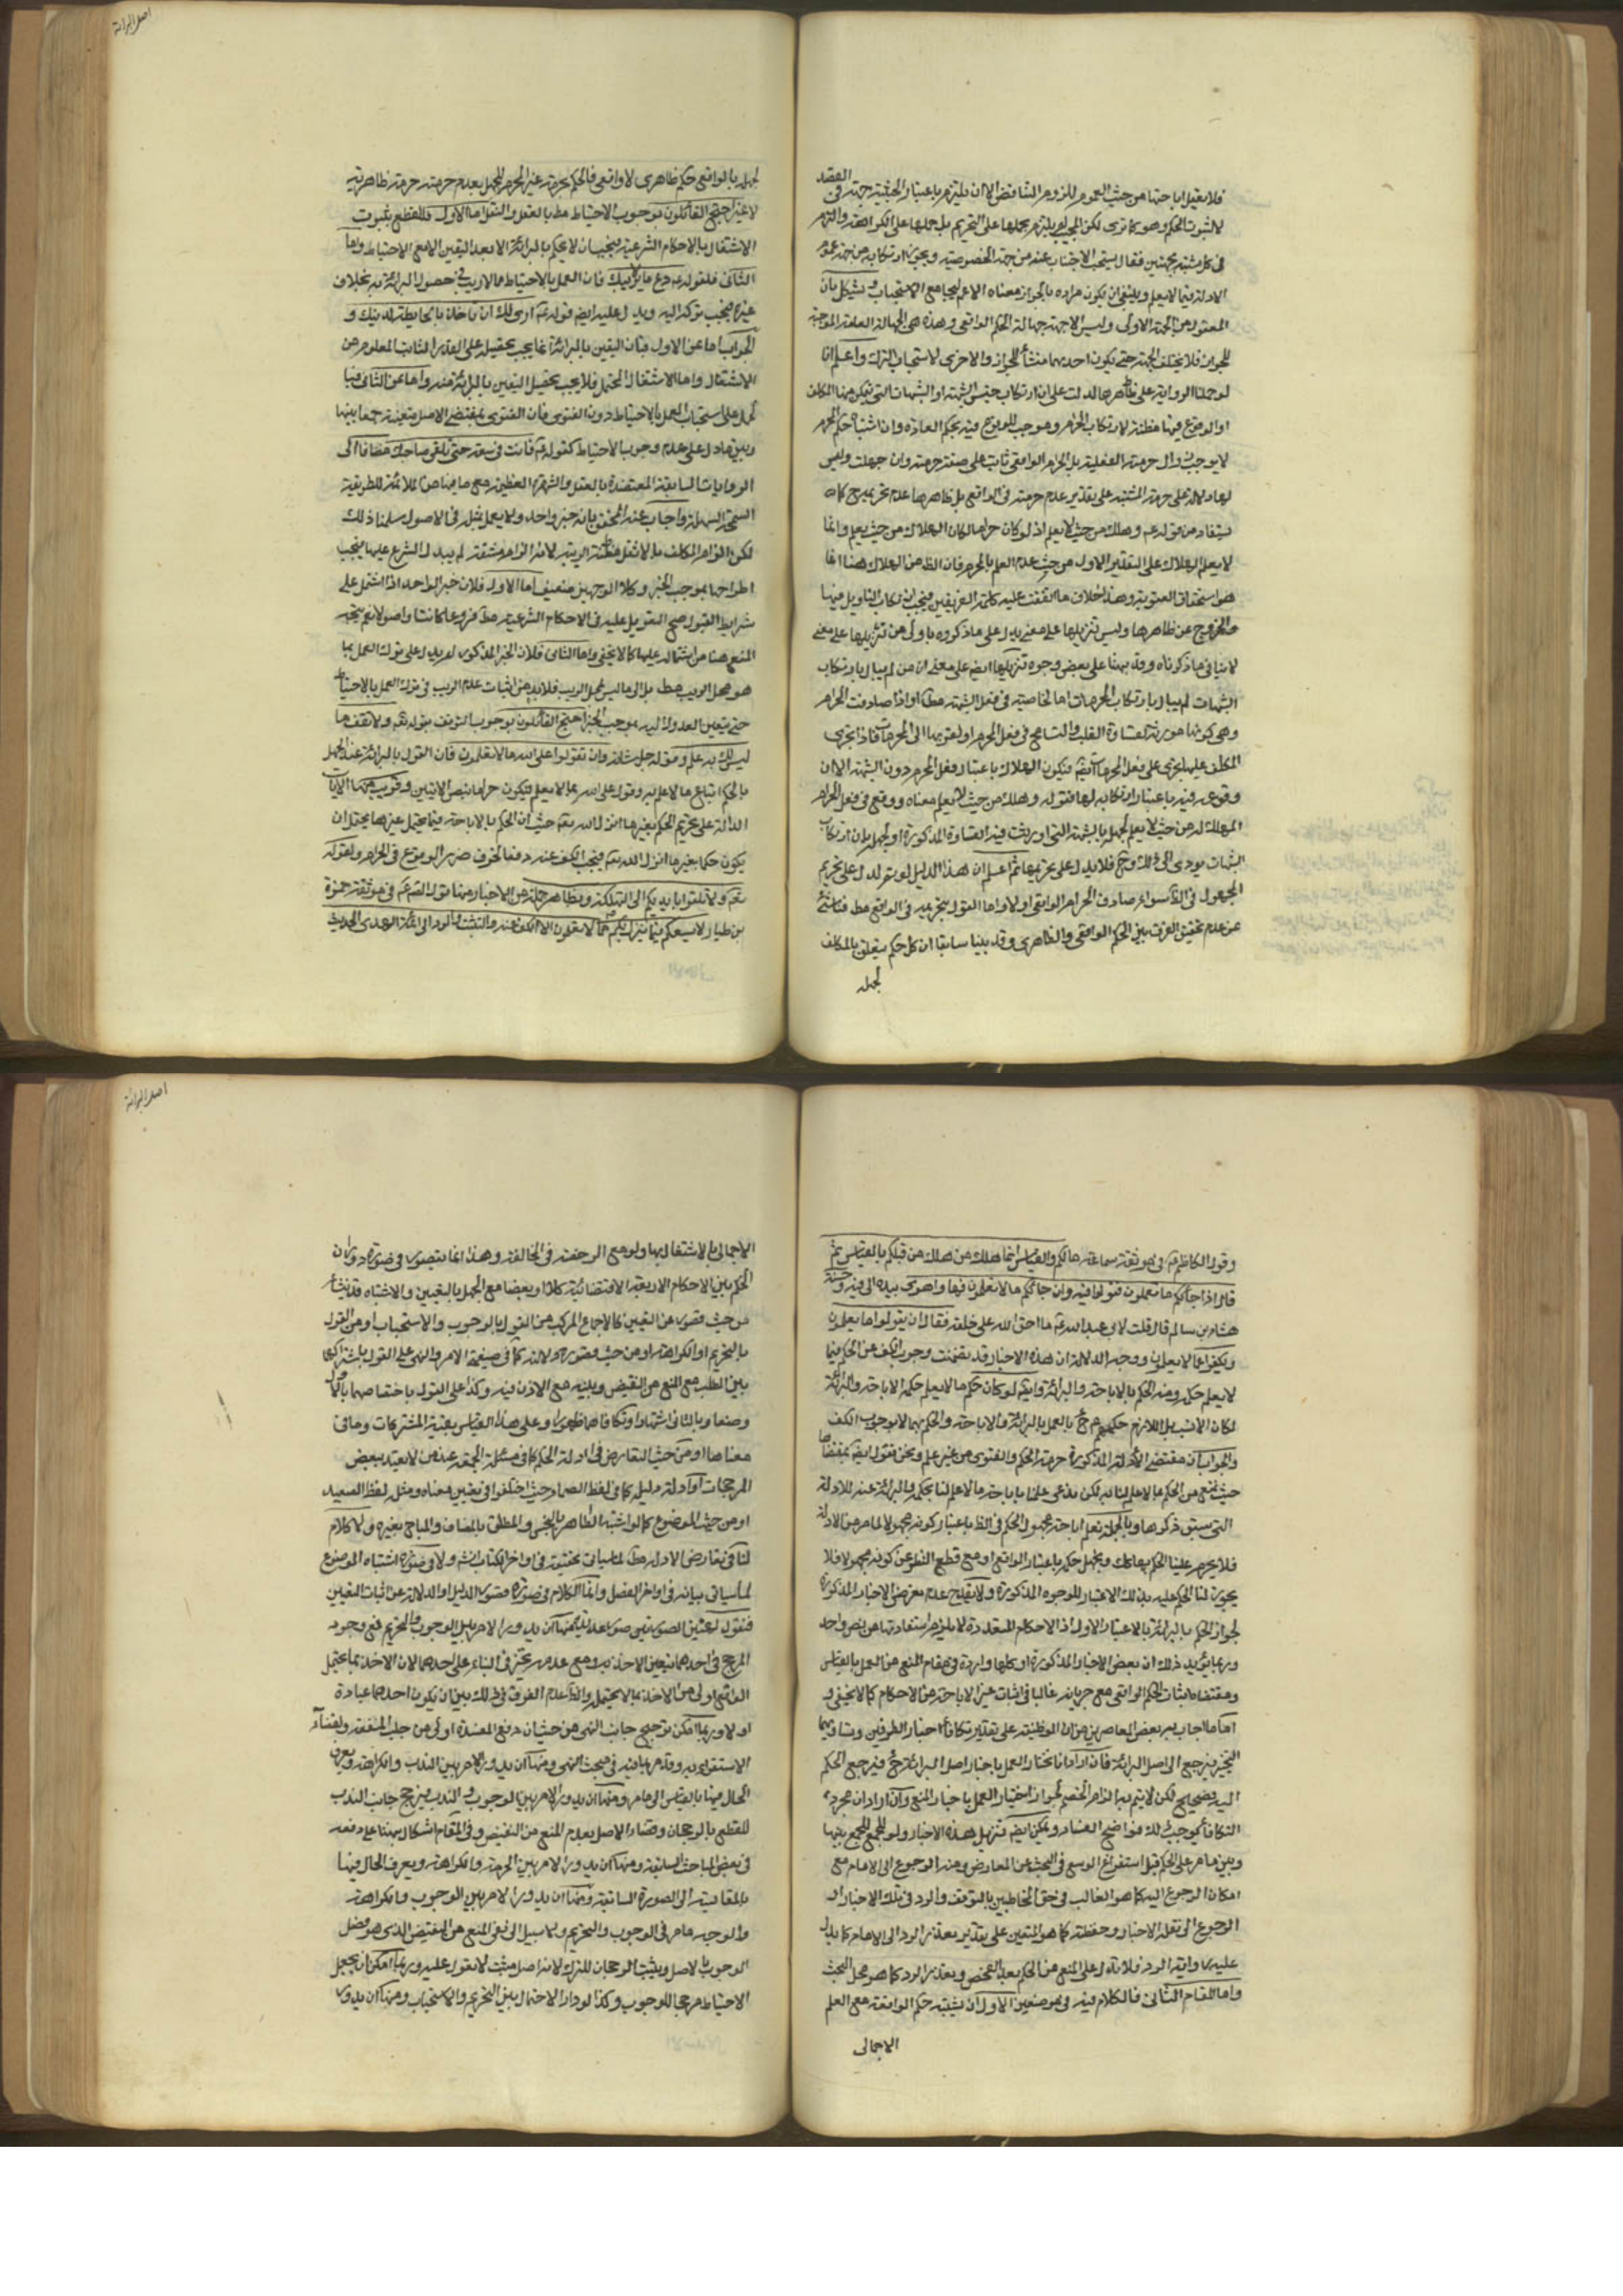 فلا يعقل اباحتها من حيث العموم للزوم التناقض الا ان يلتزم باعتبار الحيثية جهته في العقد
لا لثبوت الحكم وهو كما ترى لكن المجيب لم يلتزم بحملها على التحريم بل حملها على الكراهة والتزم
في كل مشتبه بجهتين فقال يستحب الاجتناب عنه من جهة الخصوصية ويجوز ارتكابه من جهة عموم
الادلة فيما لا يعلم وينبغي ان يكون مراده بالجواز معناه الاعم ليجامع الاستحباب ويشكل بان
المعقول من الجهة الاولى وليس الا جهة جهالة الحكم الواقعي وهذه هي الجهالة العلة الموجبة
للجواز فلا يختلف الجهة حتى يكون احديهما منشأ للجواز والاخرى لاستحباب الترك واعلم انا
لو حملنا الرواية على ظاهرها لدلت على ان ارتكاب جنس الشبهة او الشبهات التي يتمكن منها المكلف
او الوقوع فيها مظنة لارتكاب الحرام وموجب للوقوع فيه بحكم العادة وان اشتباه حكم الحرام
لا يوجب زوال حرمته الفعلية بل الحرام الواقعي ثابت على صفة حرمته وان جهلت وليس
لها دلالة على حرمة المشتبه على تقدير عدم حرمته في الواقع بل ظاهرها عدم تحريمه ح كما
يستفاد من قوله عم وهلك من حيث لا يعلم اذ لو كان حراما لكان الهلاك من حيث يعلم وانما
لا يعلم الهلاك على التقدير الاول من حيث عدم العلم بالحرام فان الظ من الهلاك هنا انما
هو استحقاق العقوبة وهذا خلاف ما اتفقت عليه كلمة الفريقين فيجب ارتكاب التاويل فيها
والخروج عن ظاهرها وليس تنزيلها على معنى يدل على ما ذكروه باولى من تنزيلها على معنى
لا ينافي ما ذكرناه وقد نبهنا على بعض وجوه تنزيلها ايضا على معنى ان من لم يبال بارتكاب
الشبهات لم يبال بارتكاب المحرمات اما لخاصية في فعل الشبهة مطلقا او اذا صادفت الحرام
وهي كونها مورثة لقساوة القلب والتسامح في فعل الحرام او لقربها الى المحرمات فاذا تجرى
المكلف عليها تجرى على فعل المحرمات ايضا فيكون الهلاك باعتبار فعل المحرم دون الشبهة الا ان
وقوعه فيه باعتبار ارتكابه لها فقوله وهلك من حيث لا يعلم معناه ووقع في فعل الحرام
المهلك له من حيث لا يعلم لجهله بالشبهة التي اورثت فيه القساوة المذكورة او لجهله بان ارتكاب
الشبهات يودي الى ذلك وح فلا يدل على تحريمها ثم اعلم ان هذا الدليل لو تم لدل على تحريم
المجهول في الظ سواء صادف الحرام الواقعي او لا واما القول بتحريمه في الواقع مط فناشئ
عن عدم تحقيق الفرق بين الحكم الواقعي والظاهري وقد بينا سابقا ان كل حكم يتعلق بالمكلف
لجهله
اصل البرائة
لجهله بالواقع حكم ظاهري لا واقعي فالحكم بحرمة غير المحرم للجهل بعدم حرمته حرمة ظاهرية
لا غير احتج القائلون بوجوب الاحتياط مط بالعقل والنقل اما الاول فللقطع بثبوت
الاشتغال بالاحكام الشرعية فيجب ان لا يحكم بالبرائة الا بعد اليقين الا مع الاحتياط واما
الثاني فلقوله عم دع ما يريبك فان العمل بالاحتياط مما لا ريب في حصول البرائة به بخلاف
غيره فيجب تركه اليه ويدل عليه ايضا قوله عم ارى لك ان تاخذ بالحايطة لدينك و
الجواب اما عن الاول فبان اليقين بالبرائة انما يجب تحصيله على القدر الثابت المعلوم من
الاشتغال واما الاشتغال المحتمل فلا يجب تحصيل اليقين بالبرائة منه واما عن الثاني فبا
لحمل على استحباب العمل بالاحتياط دون الفتوى فان الفتوى بمقتضى الاصل متعينة جمعا بينها
وبين ما دل على عدم وجوب الاحتياط كقوله عم فانت في سعة حتى تلقى صاحبك مضافا الى
الروايات السابقة المعتضدة بالعقل والشهرة العظيمة مع ما فيها من الملائمة للطريقة
السمحة السهلة واجاب عنه المحقق بانه خبر واحد ولا يعمل بمثله في الاصول سلمنا ذلك
لكن الزام المكلف بالاثقل مظنة الريبة لانه الزام مشقة لم يدل الشرع عليها فيجب
اطراحها بموجب الخبر وكلا الوجهين ضعيف اما الاول فلان خبر الواحد اذا اشتمل على
شرايط القبول صح التعويل عليه في الاحكام الشرعية مط فروعا كانت او اصولا نعم يتجه
المنع هنا من اشتماله عليها كما لا يخفى واما الثاني فلان الخبر المذكور لم يدل على ترك العمل بما
هو محل الريب مط بل الى ما ليس بمحل الريب فلا بد من اثبات عدم الريب في ترك العمل بالاحتياط
حتى يتعين العدول اليه بموجب الخبر احتج القائلون بوجوب التوقف بقوله تعم ولا تقف ما
ليس لك به علم وقوله جل شانه وان تقولوا على الله ما لا تعلمون فان القول بالبرائة عند الجهل
بالحكم اتباع ما لا علم به وقول على الله بما لا يعلم فيكون حراما بنص الايتين وقريب منهما الايات
الدالة على تحريم الحكم بغير ما انزل الله تعم حيث ان الحكم بالاباحة فيما يحتمل غيرها يحتمل ان
يكون حكما بغير ما انزل الله تعم فيجب الكف عنه دفعا لخوف ضرر الوقوع في الحرام ولقوله
تعم ولا تلقوا بايديكم الى التهلكة وبظاهر جملة من الاخبار منها قول الصادق عم في موثقة حمزة
بن طيار لا يسعكم فيما ينزل بكم مما لا تعلمون الا الكف عنه والتثبت والرد الى ائمة الهدى الحديث
وقول الكاظم عم في موثقة سماعة ما لكم والقياس انما هلك من هلك من قبلكم بالقياس ثم
قال اذا جائكم ما تعلمون فقولوا فيه وان جائكم ما لا تعلمون فها واهوى بيده الى فيه وحسنة
هشام بن سالم قال قلت لابي عبد الله عم ما حق الله على خلقه فقال ان يقولوا ما يعلمون
ويكفوا عما لا يعلمون ووجه الدلالة ان هذه الاخبار قد تضمنت وجوب الكف عن الحكم فيما
لا يعلم حكمه ومنه الحكم بالاباحة والبرائة وايضا لو كان حكم ما لا يعلم حكمه الاباحة والبرائة
لكان الانسب بل اللازم حكمهم عم ح بالعمل بالبرائة والاباحة والحكم بهما لا بوجوب الكف
والجواب ان مقتضى الادلة المذكورة حرمة الحكم والفتوى من غير علم ونحن نقول ايضا بمقتضاها
حيث نمنع من الحكم بما لا علم لنا به لكن ندعي علمنا باباحة ما لا علم لنا بحكمه والبرائة عنه للادلة
التي سبق ذكرها وبالجملة نعلم اباحة مجهول الحكم في الظ باعتبار كونه مجهولا لما مر من الادلة
فلا يحرم علينا الحكم بها ح ونجهل حكمه باعتبار الواقع او مع قطع النظر عن كونه مجهولا فلا
يجوز لنا الحكم عليه بذلك الاعتبار للوجوه المذكورة ولا يقدح عدم تعرض الاخبار المذكورة
لجواز الحكم بالبرائة بالاعتبار الاول اذ الاحكام المتعددة لا يلزم استفادتها من نص واحد
وربما يؤيد ذلك ان بعض الاخبار المذكورة او كلها واردة في مقام المنع من العمل بالقياس
ومقتضاه اثبات الحكم الواقعي مع جريانه غالبا في اثبات غير الاباحة من الاحكام كما لا يخفى و
اما ما اجاب به بعض المعاصرين من ان الوظيفة على تقدير تكافأ اخبار الطرفين وتساويهما
التخيير فيرجع الى اصل البرائة فان اراد انا نختار العمل باخبار اصل البرائة ح فيرجع الحكم
اليه فصحيح لكن لا يتم به الزام الخصم لجواز اختيار العمل باخبار المنع وان اراد ان مجرد
التكافأ يوجب ذلك فواضح الفساد ويمكن ايضا تنزيل هذه الاخبار ولو للجمع بينها
وبين ما مر على الحكم قبل استفراغ الوسع في البحث عن المعارض ومنه الرجوع الى الامام مع
امكان الرجوع اليه كما هو الغالب في حق المخاطبين بالتوقف والرد في تلك الاخبار او
الرجوع الى نقلة الاخبار وحفظته كما هو المتعين على تقدير تعذر الرد الى الامام كما يدل
عليه رواية الرد فلا تدل على المنع من الحكم بعد الفحص وتعذر الرد كما هو محل البحث
واما المقام الثاني فالكلام فيه في موضعين الاول ان يشتبه حكم الواقعة مع العلم
الاجمالي
اصل البرائة
الاجمالي بالاشتغال بها ولو مع الرخصة في المخالفة وهذا انما يتصور في صورة دوران
الحكم بين الاحكام الاربعة الاقتضائية كلا او بعضا مع الجهل بالتعيين والاشتباه قد ينشأ
من حيث قصور عن التعيين كالاجماع المركب من القول بالوجوب والاستحباب او من القول
بالتحريم او الكراهة او من حيث قصور دلالته كما في صيغة الامر والنهي على القول باشتراكهما
بين الطلب مع المنع من النقيض وبينه مع الاذن فيه وكذا على القول باختصاصهما بالاول
وضعا وبالثاني اشتهارا وتكافأهما ظهورا وعلى هذا القياس بقية المشتركات وما في
معناها او من حيث التعارض في ادلة الحكم كما في مسئلة الجمعة عند من لا يعتد ببعض
المرجحات او ادلة دليله كما في لفظ الصعيد حيث اختلفوا في تعيين معناه ومثل لفظ الصعيد
او من حيث الموضوع كما لو اشتبه الطاهر بالنجس والمطلق بالمضاف والمباح بغيره ولا كلام
لنا في تعارض الادلة مط لما سياتي تحقيقه في اواخر الكتاب انش ولا في صورة اشتباه الموضوع
لما سياتي بيانه في اواخر الفصل وانما الكلام في صورة قصور الدليل او الدلالة عن اثبات التعيين
فنقول لهاتين الصورتين صور عديدة منها ان يدور الامر بين الوجوب والتحريم فمع وجود
المرجح في احدهما يتعين الاخذ به ومع عدمه يتخير في البناء على احدهما لان الاخذ بما يحتمل
الواقع اولى من الاخذ بما لا يحتمله والظ عدم الفرق في ذلك بين ان يكون احدهما عبادة
او لا وربما امكن ترجيح جانب النهي من حيث ان دفع المفسدة اولى من جلب المنفعة ولقضاء
الاستقراء به وقد مر ما فيه في مبحث النهي ومنها ان يدور الامر بين الندب والكراهة ويعرف
الحال فيها بالقياس الى ما مر ومنها ان يدور الامر بين الوجوب والندب فيرجح جانب الندب
للقطع بالرجحان وقضاء الاصل بعدم المنع من النقيض وفي المقام اشكال نبهنا على دفعه
في بعض المباحث السابقة ومنها ان يدور الامر بين الحرمة والكراهة ويعرف الحال فيها
بالمقايسة الى الصورة السابقة ومنها ان يدور الامر بين الوجوب والكراهة
والوجه ما مر في الوجوب والتحريم ولا سبيل الى نفي المنع من النقيض الذي هو فصل
الوجوب بالاصل ويثبت الرجحان للترك لانه اصل مثبت لا تعويل عليه وربما امكن ان يجعل
الاحتياط مرجحا للوجوب وكذا لو دار الاحتمال بين التحريم والاستحباب ومنها ان يدور